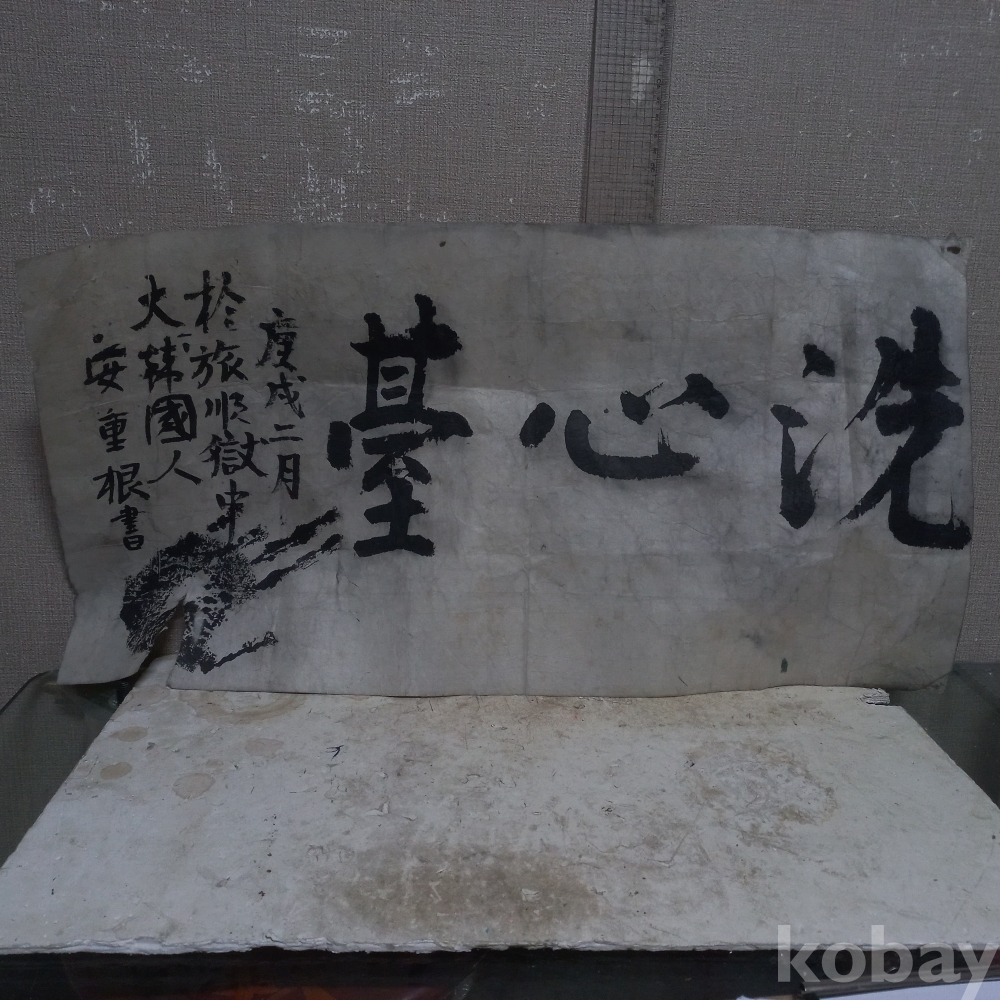 洗心臺
庚戌二月
於旅順獄中
大韓國人
安重根書
kobay